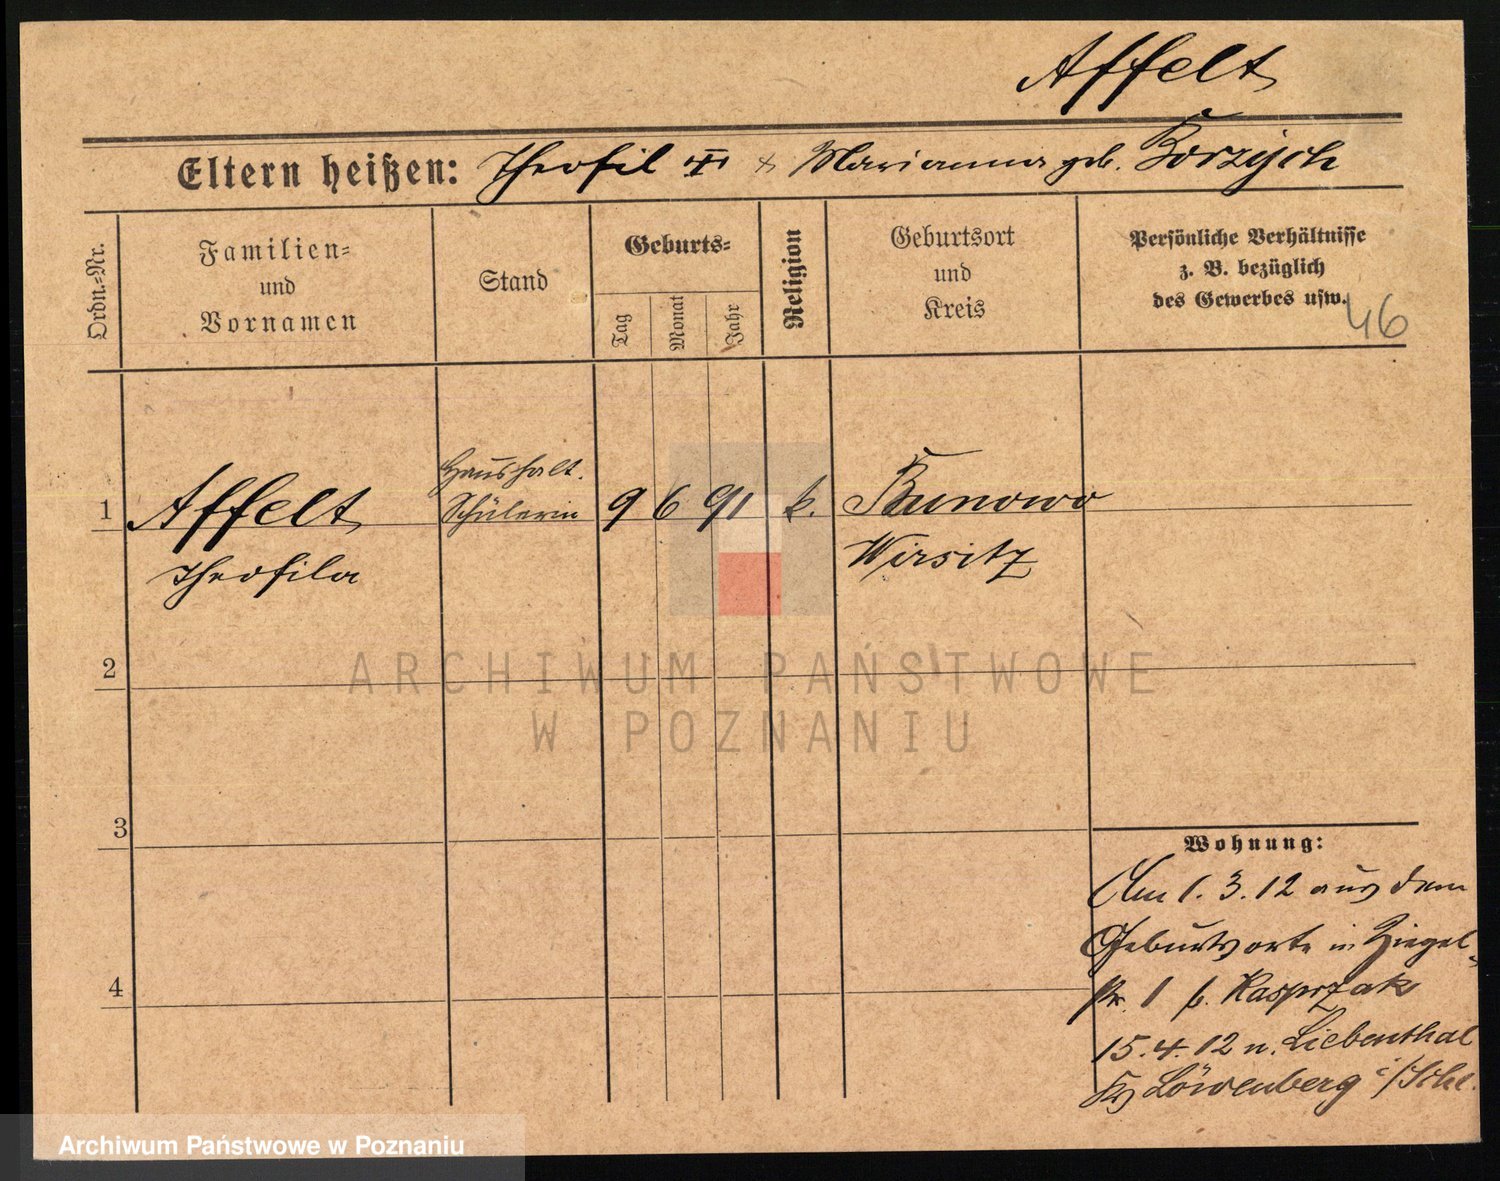 Affelt
Eltern heißen: Theofil + Marianna geb. Korzych
Ordn.-Nr.
Familien-
und
Vornamen
Stand
Geburts-
Tag
Monat
Jahr
Religion
Geburtsort
und
Kreis
Persönliche Verhältnisse
z. B. bezüglich
des Gewerbes usw.
46
Haushalt.
1 Affelt Schülerin 9 6 91 k. Runowo
Theofila Wirsitz
2
3
4
Wohnung:
Am 1.3.12 aus dem
Geburtsorte in Ziegel-
str. 1 b. Kasprzak
15.4.12 n. Liebenthal
Krs Löwenberg i/Schl.
ARCHIWUM PAŃSTWOWE
W POZNANIU
Archiwum Państwowe w Poznaniu